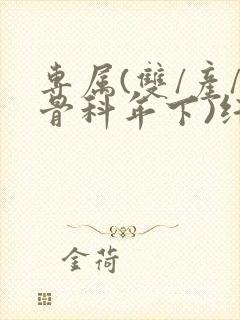 專属(雙/產/
骨科年下)
金荷